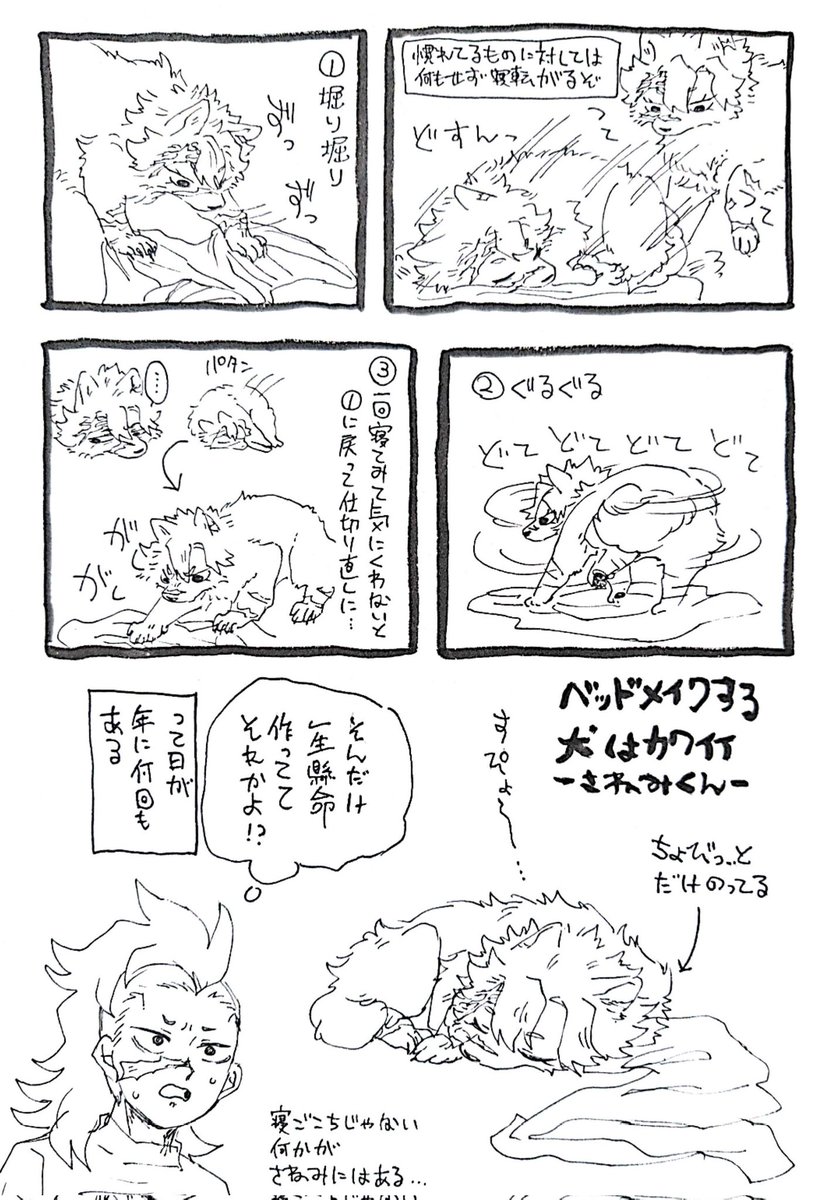 慣れてるものに対しては
何もせず寝転がるぞ
って
どすんっ
①堀り堀り
ずっ
ずっ
②ぐるぐる
どて どて どて どて
③一回寝てみて気にくわないと
①に戻って仕切り直しに…
パタン
……
がし
がし
ベッドメイクする
犬はカワイイ
ーさねみくんー
すぴょ〜…
ちょびっ…と
だけのってる
そんだけ
一生懸命
作ってて
それかよ!?
って日が
年に何回も
ある
寝ごこちじゃない
何かが
さねみにはある…